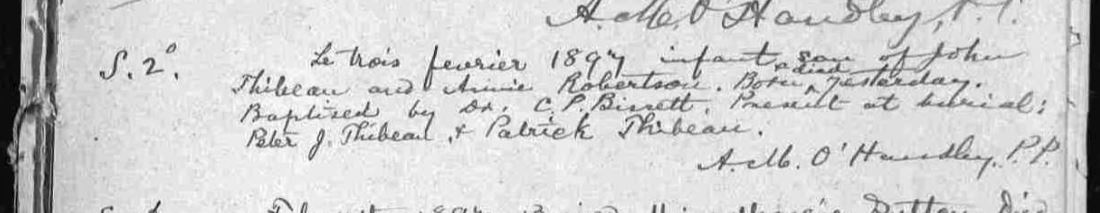 A. McD. O'Handley, P.P.
S. 2°. Le trois fevrier 1897 infant son of John
Thibeau and Annie Robertson. Born & died Yesterday.
Baptised by Dr. C. P. Bissett. Present at burial:
Peter J. Thibeau & Patrick Thibeau.
A. McD. O'Handley, P.P.